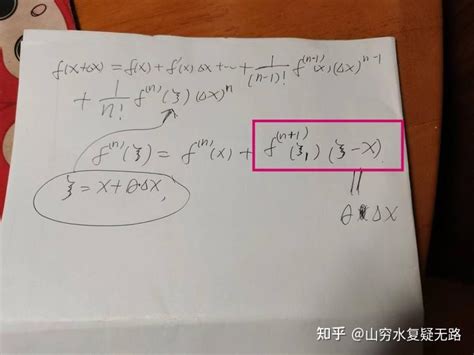 f(x+Δx) = f(x) + f'(x) Δx + ... + 1/(n-1)! f^(n-1)(x) (Δx)^n-1
+ 1/n! f^(n)(ξ) (Δx)^n
f^(n)(ξ) = f^(n)(x) + f^(n+1)(ξ₁) (ξ-x)
ξ = x + θΔx
||
θ Δx
知乎 @山穷水复疑无路